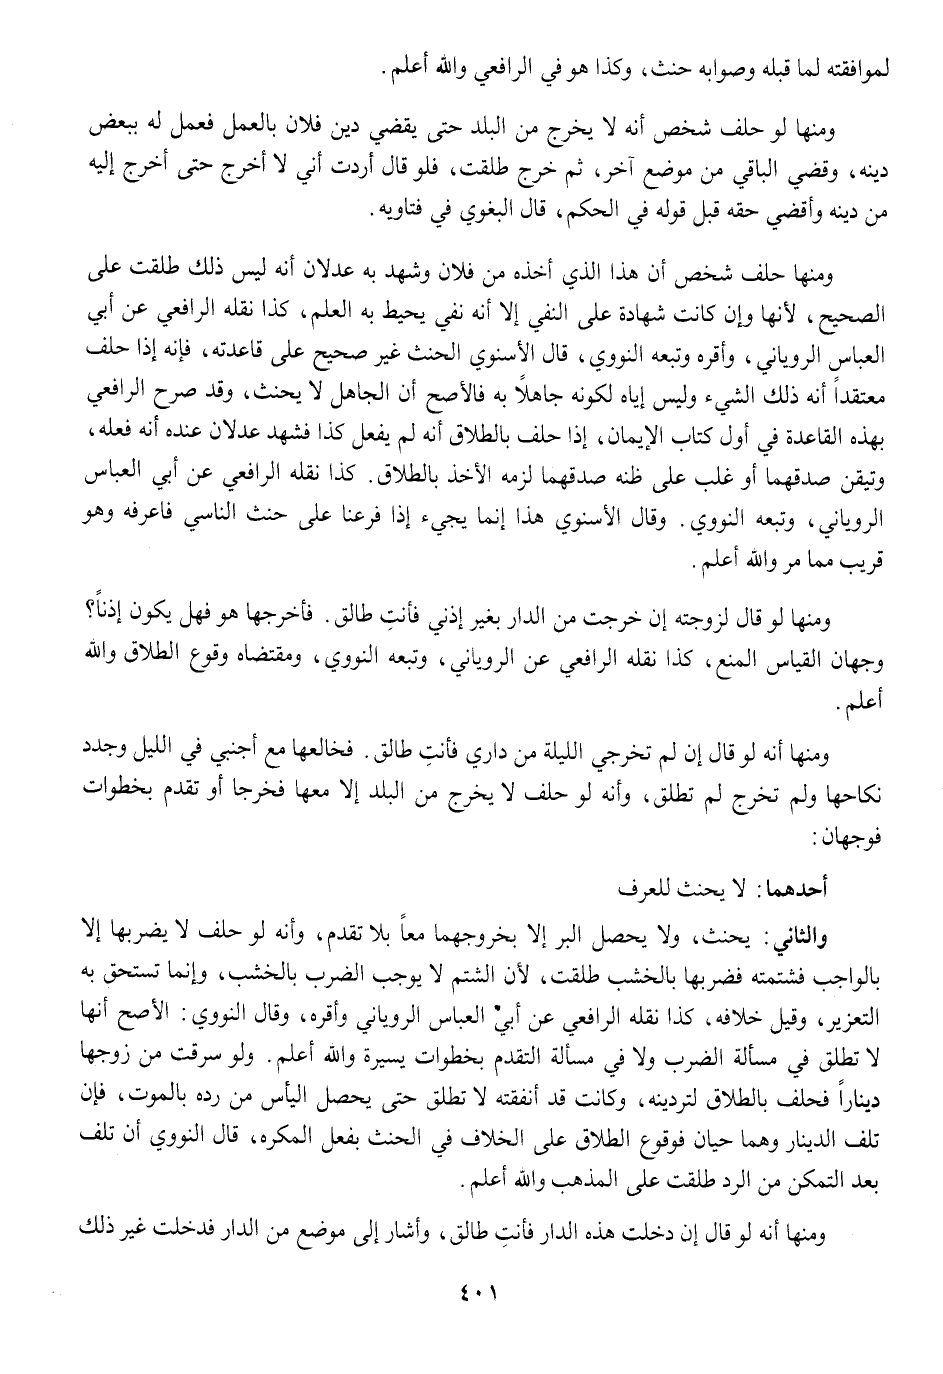 لموافقته لما قبله وصوابه حنث، وكذا هو في الرافعي والله أعلم.
ومنها لو حلف شخص أنه لا يخرج من البلد حتى يقضي دين فلان بالعمل فعمل له ببعض
دينه، وقضي الباقي من موضع آخر، ثم خرج طلقت، فلو قال أردت أني لا أخرج حتى أخرج إليه
من دينه وأقضي حقه قبل قوله في الحكم، قال البغوي في فتاويه.
ومنها حلف شخص أن هذا الذي أخذه من فلان وشهد به عدلان أنه ليس ذلك طلقت على
الصحيح، لأنها وإن كانت شهادة على النفي إلا أنه نفي يحيط به العلم، كذا نقله الرافعي عن أبي
العباس الروياني، وأقره وتبعه النووي، قال الأسنوي الحنث غير صحيح على قاعدته، فإنه إذا حلف
معتقداً أنه ذلك الشيء وليس إياه لكونه جاهلاً به فالأصح أن الجاهل لا يحنث، وقد صرح الرافعي
بهذه القاعدة في أول كتاب الإيمان، إذا حلف بالطلاق أنه لم يفعل كذا فشهد عدلان عنده أنه فعله،
وتيقن صدقهما أو غلب على ظنه صدقهما لزمه الأخذ بالطلاق. كذا نقله الرافعي عن أبي العباس
الروياني، وتبعه النووي. وقال الأسنوي هذا إنما يجيء إذا فرعنا على حنث الناسي فاعرفه وهو
قريب مما مر والله أعلم.
ومنها لو قال لزوجته إن خرجت من الدار بغير إذني فأنتِ طالق. فأخرجها هو فهل يكون إذناً؟
وجهان القياس المنع، كذا نقله الرافعي عن الروياني، وتبعه النووي، ومقتضاه وقوع الطلاق والله
أعلم.
ومنها أنه لو قال إن لم تخرجي الليلة من داري فأنتِ طالق. فخالعها مع أجنبي في الليل وجدد
نكاحها ولم تخرج لم تطلق، وأنه لو حلف لا يخرج من البلد إلا معها فخرجا أو تقدم بخطوات
فوجهان:
أحدهما: لا يحنث للعرف
والثاني: يحنث، ولا يحصل البر إلا بخروجهما معاً بلا تقدم، وأنه لو حلف لا يضربها إلا
بالواجب فشتمته فضربها بالخشب طلقت، لأن الشتم لا يوجب الضرب بالخشب، وإنما تستحق به
التعزير، وقيل خلافه، كذا نقله الرافعي عن أبي العباس الروياني وأقره، وقال النووي: الأصح أنها
لا تطلق في مسألة الضرب ولا في مسألة التقدم بخطوات يسيرة والله أعلم. ولو سرقت من زوجها
ديناراً فحلف بالطلاق لتردينه، وكانت قد أنفقته لا تطلق حتى يحصل اليأس من رده بالموت، فإن
تلف الدينار وهما حيان فوقوع الطلاق على الخلاف في الحنث بفعل المكره، قال النووي أن تلف
بعد التمكن من الرد طلقت على المذهب والله أعلم.
ومنها أنه لو قال إن دخلت هذه الدار فأنتِ طالق، وأشار إلى موضع من الدار فدخلت غير ذلك
٤٠١